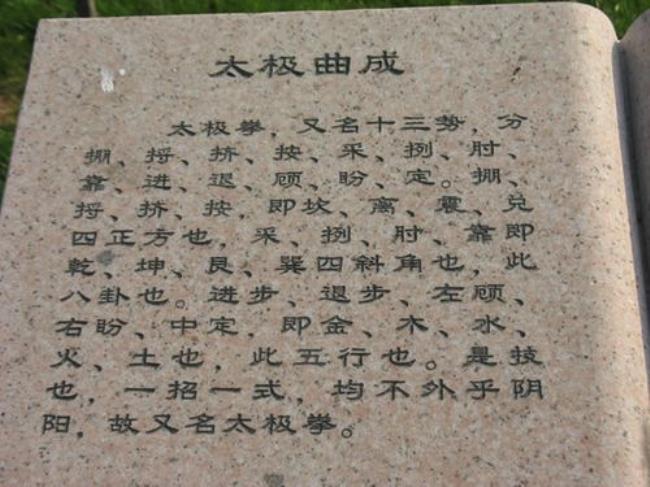 太极曲成
太极拳，又名十三势，分
掤、捋、挤、按、采、挒、肘、
靠、进、退、顾、盼、定。掤、
捋、挤、按，即坎、离、震、兑
四正方也，采、挒、肘、靠即
乾、坤、艮、巽四斜角也，此
八卦也。进步、退步、左顾、
右盼、中定，即金、木、水、
火、土也，此五行也。是技
也，一招一式，均不外乎阴
阳，故又名太极拳。